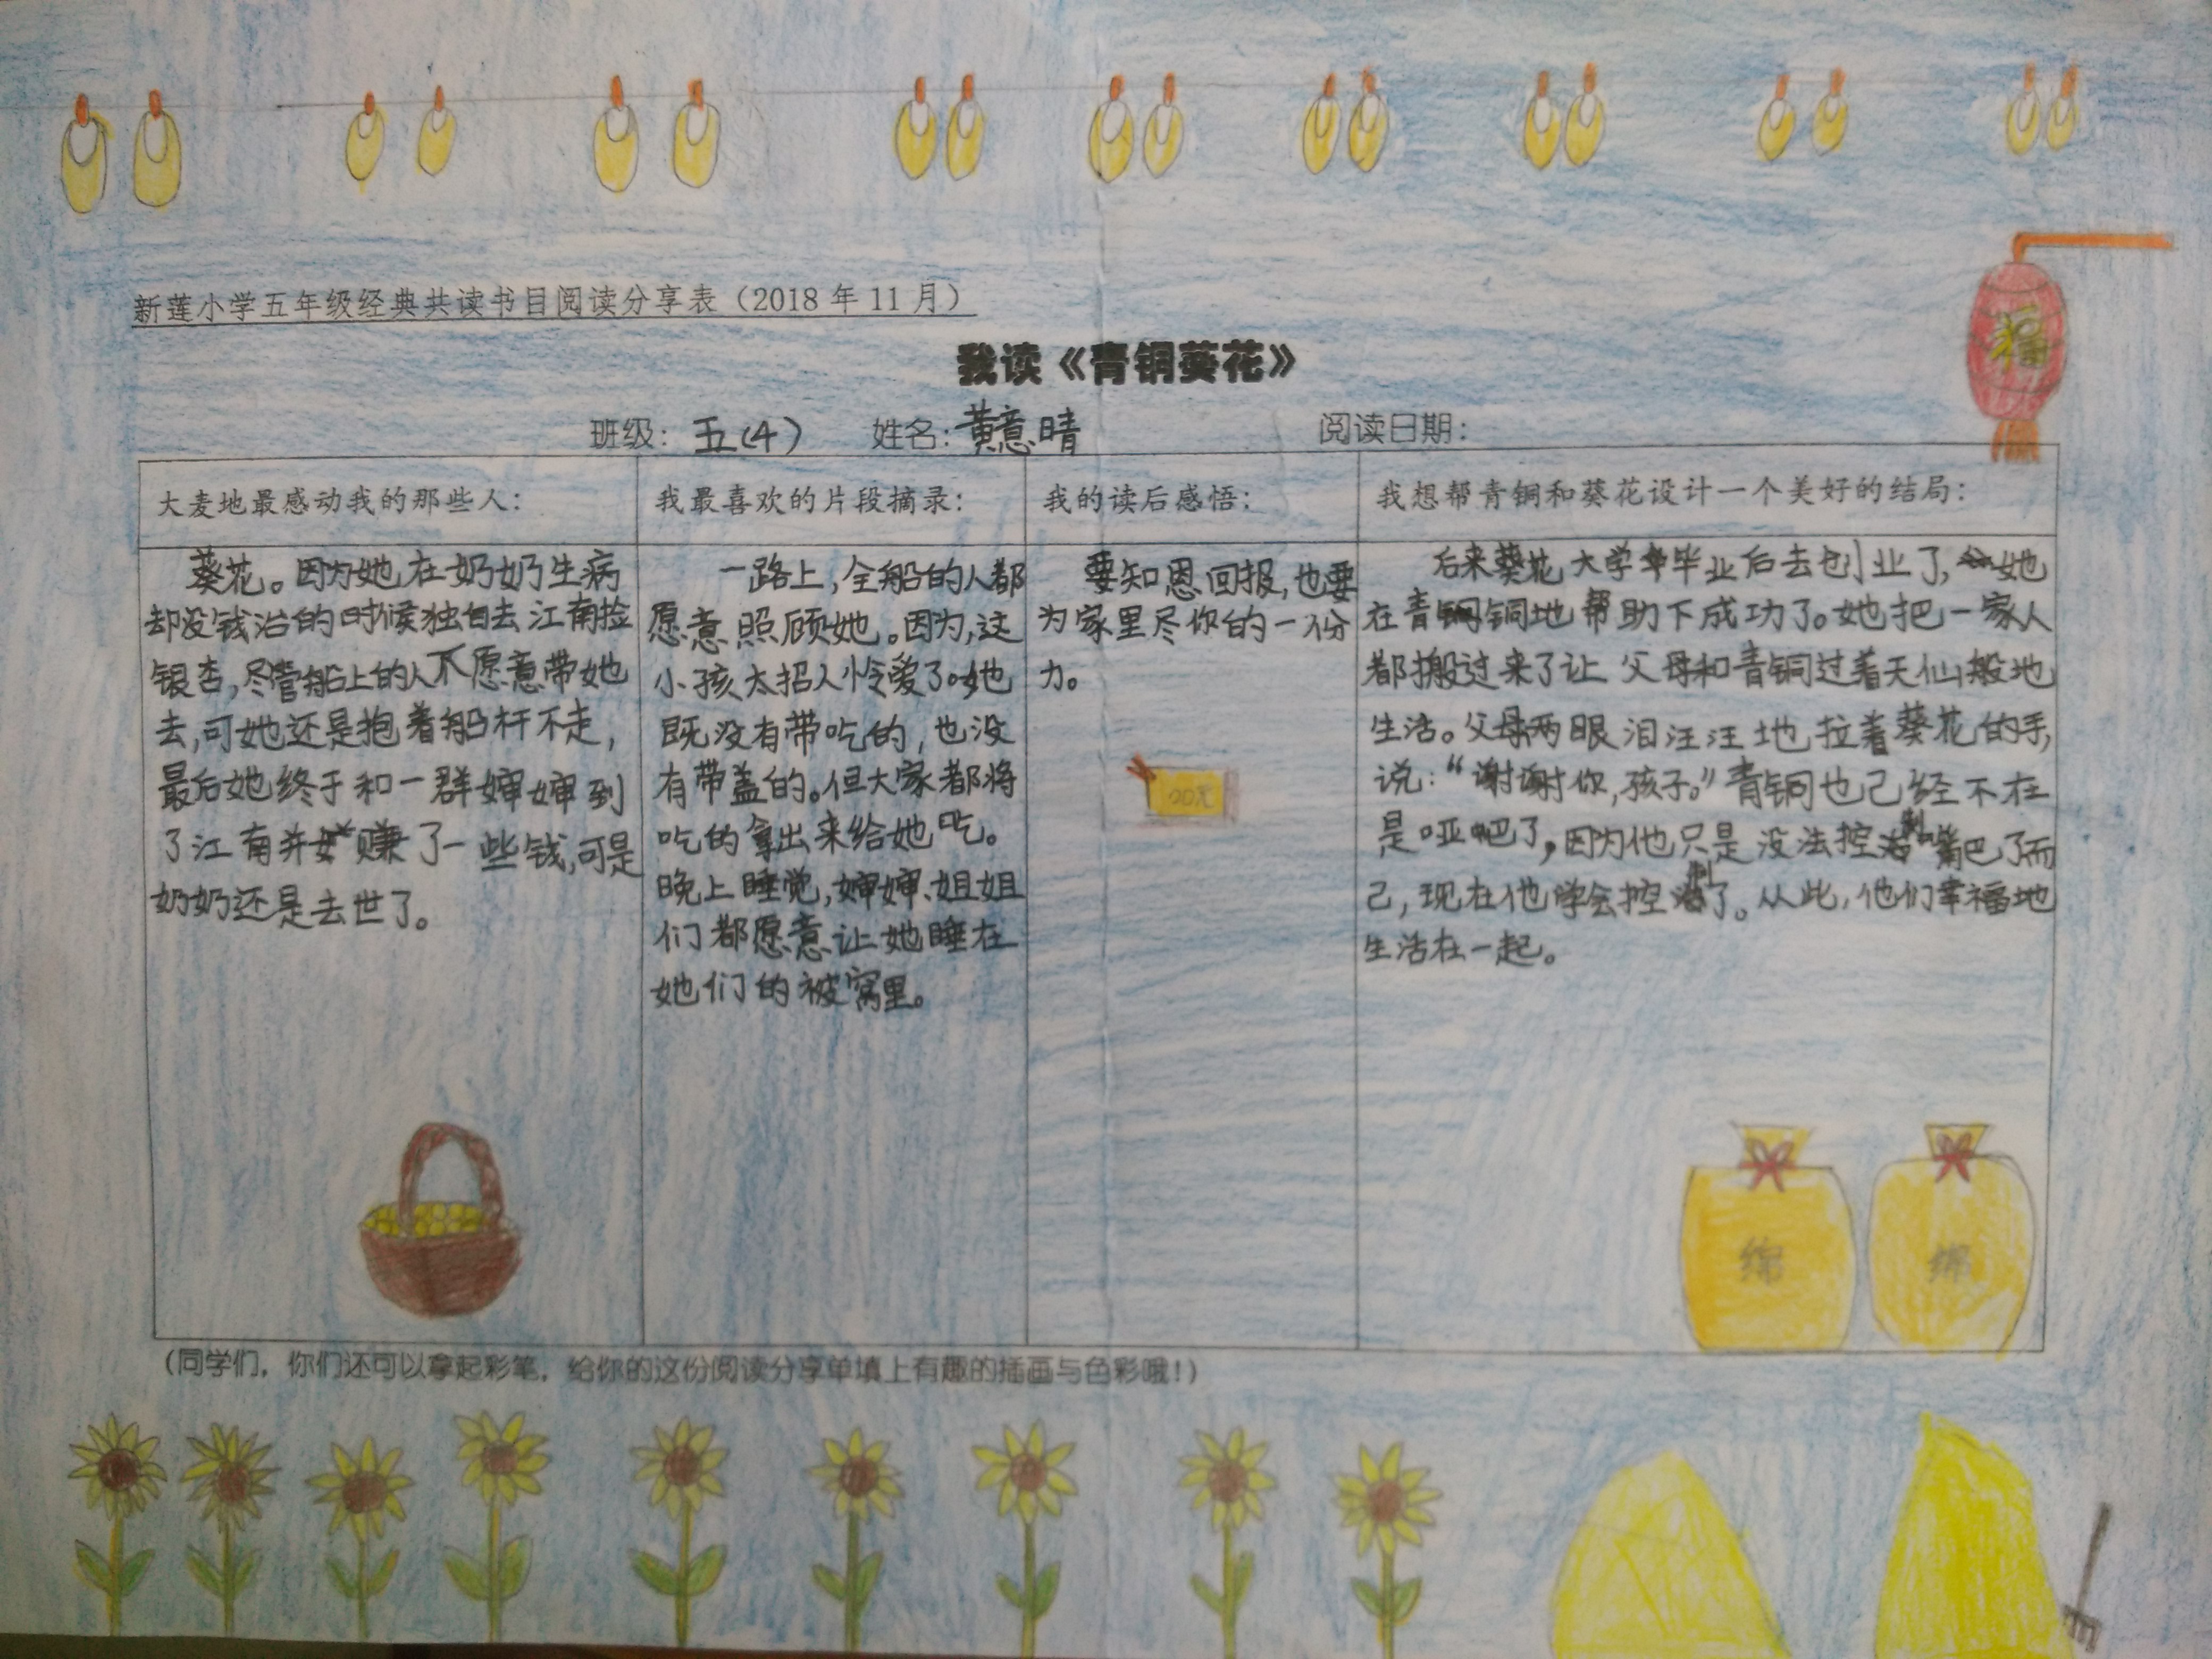 新莲小学五年级经典共读书目阅读分享表（2018 年 11 月）
福
我读《青铜葵花》
班级：五(4) 姓名：黄意晴 阅读日期：
大麦地最感动我的那些人：
葵花。因为她在奶奶生病
却没钱治的时候独自去江南捡
银杏，尽管船上的人不愿意带她
去，可她还是抱着船杆不走，
最后她终于和一群婶婶到
了江南并赚了一些钱，可是
奶奶还是去世了。
我最喜欢的片段摘录：
一路上，全船的人都
愿意照顾她。因为，这
小孩太招人怜爱了。她
既没有带吃的，也没
有带盖的。但大家都将
吃的拿出来给她吃。
晚上睡觉，婶婶、姐姐
们都愿意让她睡在
她们的被窝里。
我的读后感悟：
要知恩回报，也要
为家里尽你的一份
力。
20元
我想帮青铜和葵花设计一个美好的结局：
后来葵花大学毕业后去创业了，她
在青铜铜地帮助下成功了。她把一家人
都搬过来了让父母和青铜过着天仙般地
生活。父母两眼泪汪汪地拉着葵花的手，
说：“谢谢你，孩子。”青铜也己经不在
是哑吧了，因为他只是没法控制嘴巴了而
己，现在他学会控制了。从此，他们幸福地
生活在一起。
绵
绵
（同学们，你们还可以拿起彩笔，给你的这份阅读分享单填上有趣的插画与色彩哦！）